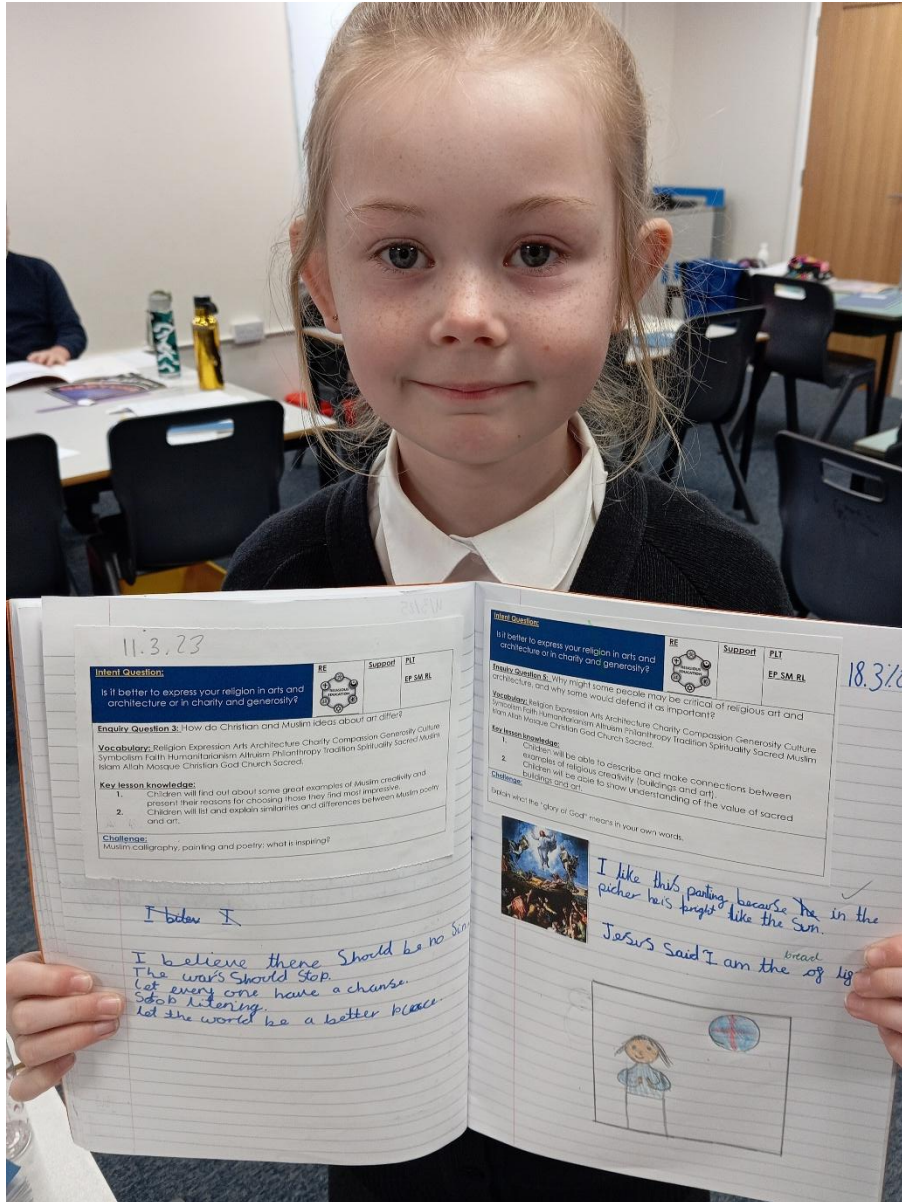 11.3.23
Intent Question:
Is it better to express your religion in arts and
architecture or in charity and generosity?
RE
Support
PLT
EP SM RL
RELIGIOUS
EDUCATION
Enquiry Question 3: How do Christian and Muslim ideas about art differ?
Vocabulary: Religion Expression Arts Architecture Charity Compassion Generosity Culture
Symbolism Faith Humanitarianism Altruism Philanthropy Tradition Spirituality Sacred Muslim
Islam Allah Mosque Christian God Church Sacred.
Key lesson knowledge:
1. Children will find out about some great examples of Muslim creativity and
present their reasons for choosing those they find most impressive.
2. Children will list and explain similarities and differences between Muslim poetry
and art.
Challenge:
Muslim calligraphy, painting and poetry: what is inspiring?
I believe there Should be no Sin
The wars Should Stop.
Let every one have a chanse.
litening.
let the world be a better
Intent Question:
Is it better to express your religion in arts and
architecture or in charity and generosity?
RE
Support
PLT
EP SM RL
18.3
Enquiry Question 5: Why might some people may be critical of religious art and
architecture, and why some would defend it as important?
Vocabulary: Religion Expression Arts Architecture Charity Compassion Generosity Culture
Symbolism Faith Humanitarianism Altruism Philanthropy Tradition Spirituality Sacred Muslim
Islam Allah Mosque Christian God Church Sacred.
Key lesson knowledge:
1. Children will be able to describe and make connections between
examples of religious creativity (buildings and art).
2. Children will be able to show understanding of the value of sacred
buildings and art.
Challenge:
Explain what the "glory of God" means in your own words.
I like this panting because he in the
picher he is bright like the Sun.
bread
Jesus Said I am the of lig